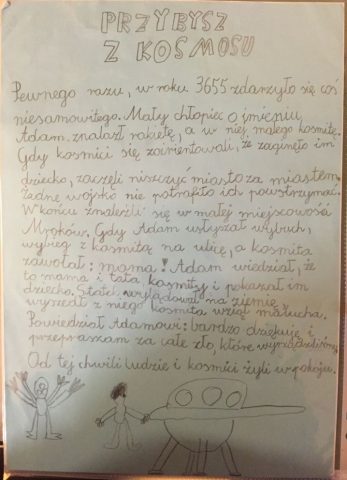 PRZYBYSZ
Z KOSMOSU
Pewnego razu, w roku 3655 zdarzyło się coś
niesamowitego. Mały chłopiec o imieniu
Adam znalazł rakietę, a w niej małego kosmitę.
Gdy kosmici się zorientowali, że zaginęło im
dziecko, zaczęli niszczyć miasto za miastem.
Żadne wojsko nie potrafiło ich powstrzymać.
W końcu znaleźli się w małej miejscowości
Mroków. Gdy Adam usłyszał wybuch,
wybiegł z kosmitą na ulicę, a kosmita
zawołał: mama! Adam wiedział, że
to mama i tata kosmity i pokazał im
dziecko. Statek wylądował na ziemię
wyszedł z niego kosmita wziął malucha.
Powiedział Adamowi: bardzo dziękuję i
przepraszam za całe zło, które wyrządziliśmy.
Od tej chwili ludzie i kosmici żyli w pokoju.